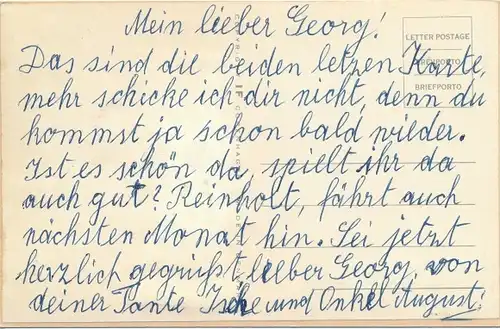 Mein lieber Georg!
LETTER POSTAGE
Das sind die beiden letzen Karte,
BRIEFPORTO
mehr schicke ich dir nicht, denn du
kommst ja schon bald wieder.
Ist es schön da, spielt ihr da
auch gut? Reinholt, fährt auch
nächsten Monat hin. Sei jetzt
herzlich gegrüßt lieber Georg, von
deiner Tante und Onkel August!